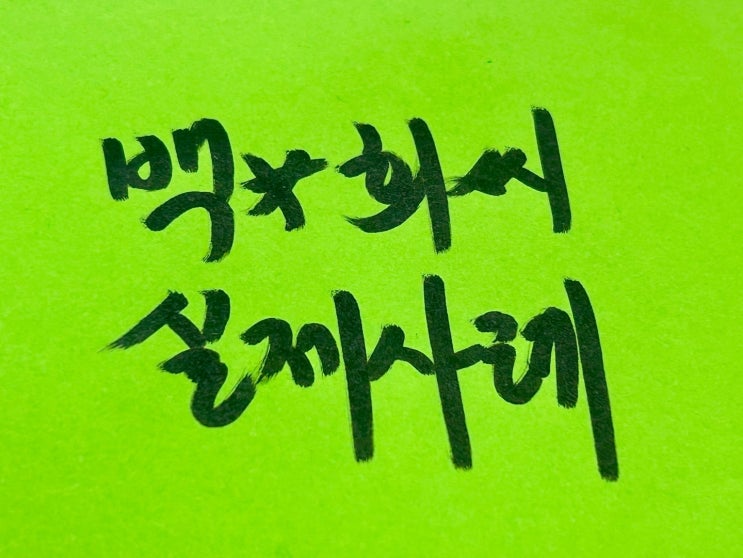 백*희씨
실제사례